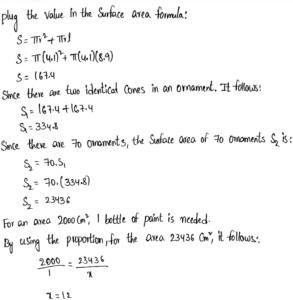 plug the value in the Surface area formula:
S = πr² + πrl
S = π(4.1)² + π(4.1)(8.9)
S = 167.4
Since there are two identical Cones in an ornament. It follows:
S₁ = 167.4 + 167.4
S₁ = 334.8
Since there are 70 ornaments, the Surface area of 70 ornaments S₂ is:
S₂ = 70.S₁
S₂ = 70.(334.8)
S₂ = 23436
For an area 2000 Cm², 1 bottle of paint is needed.
By using the proportion, for the area 23436 Cm², it follows:
2000/1 = 23436/x
x = 12